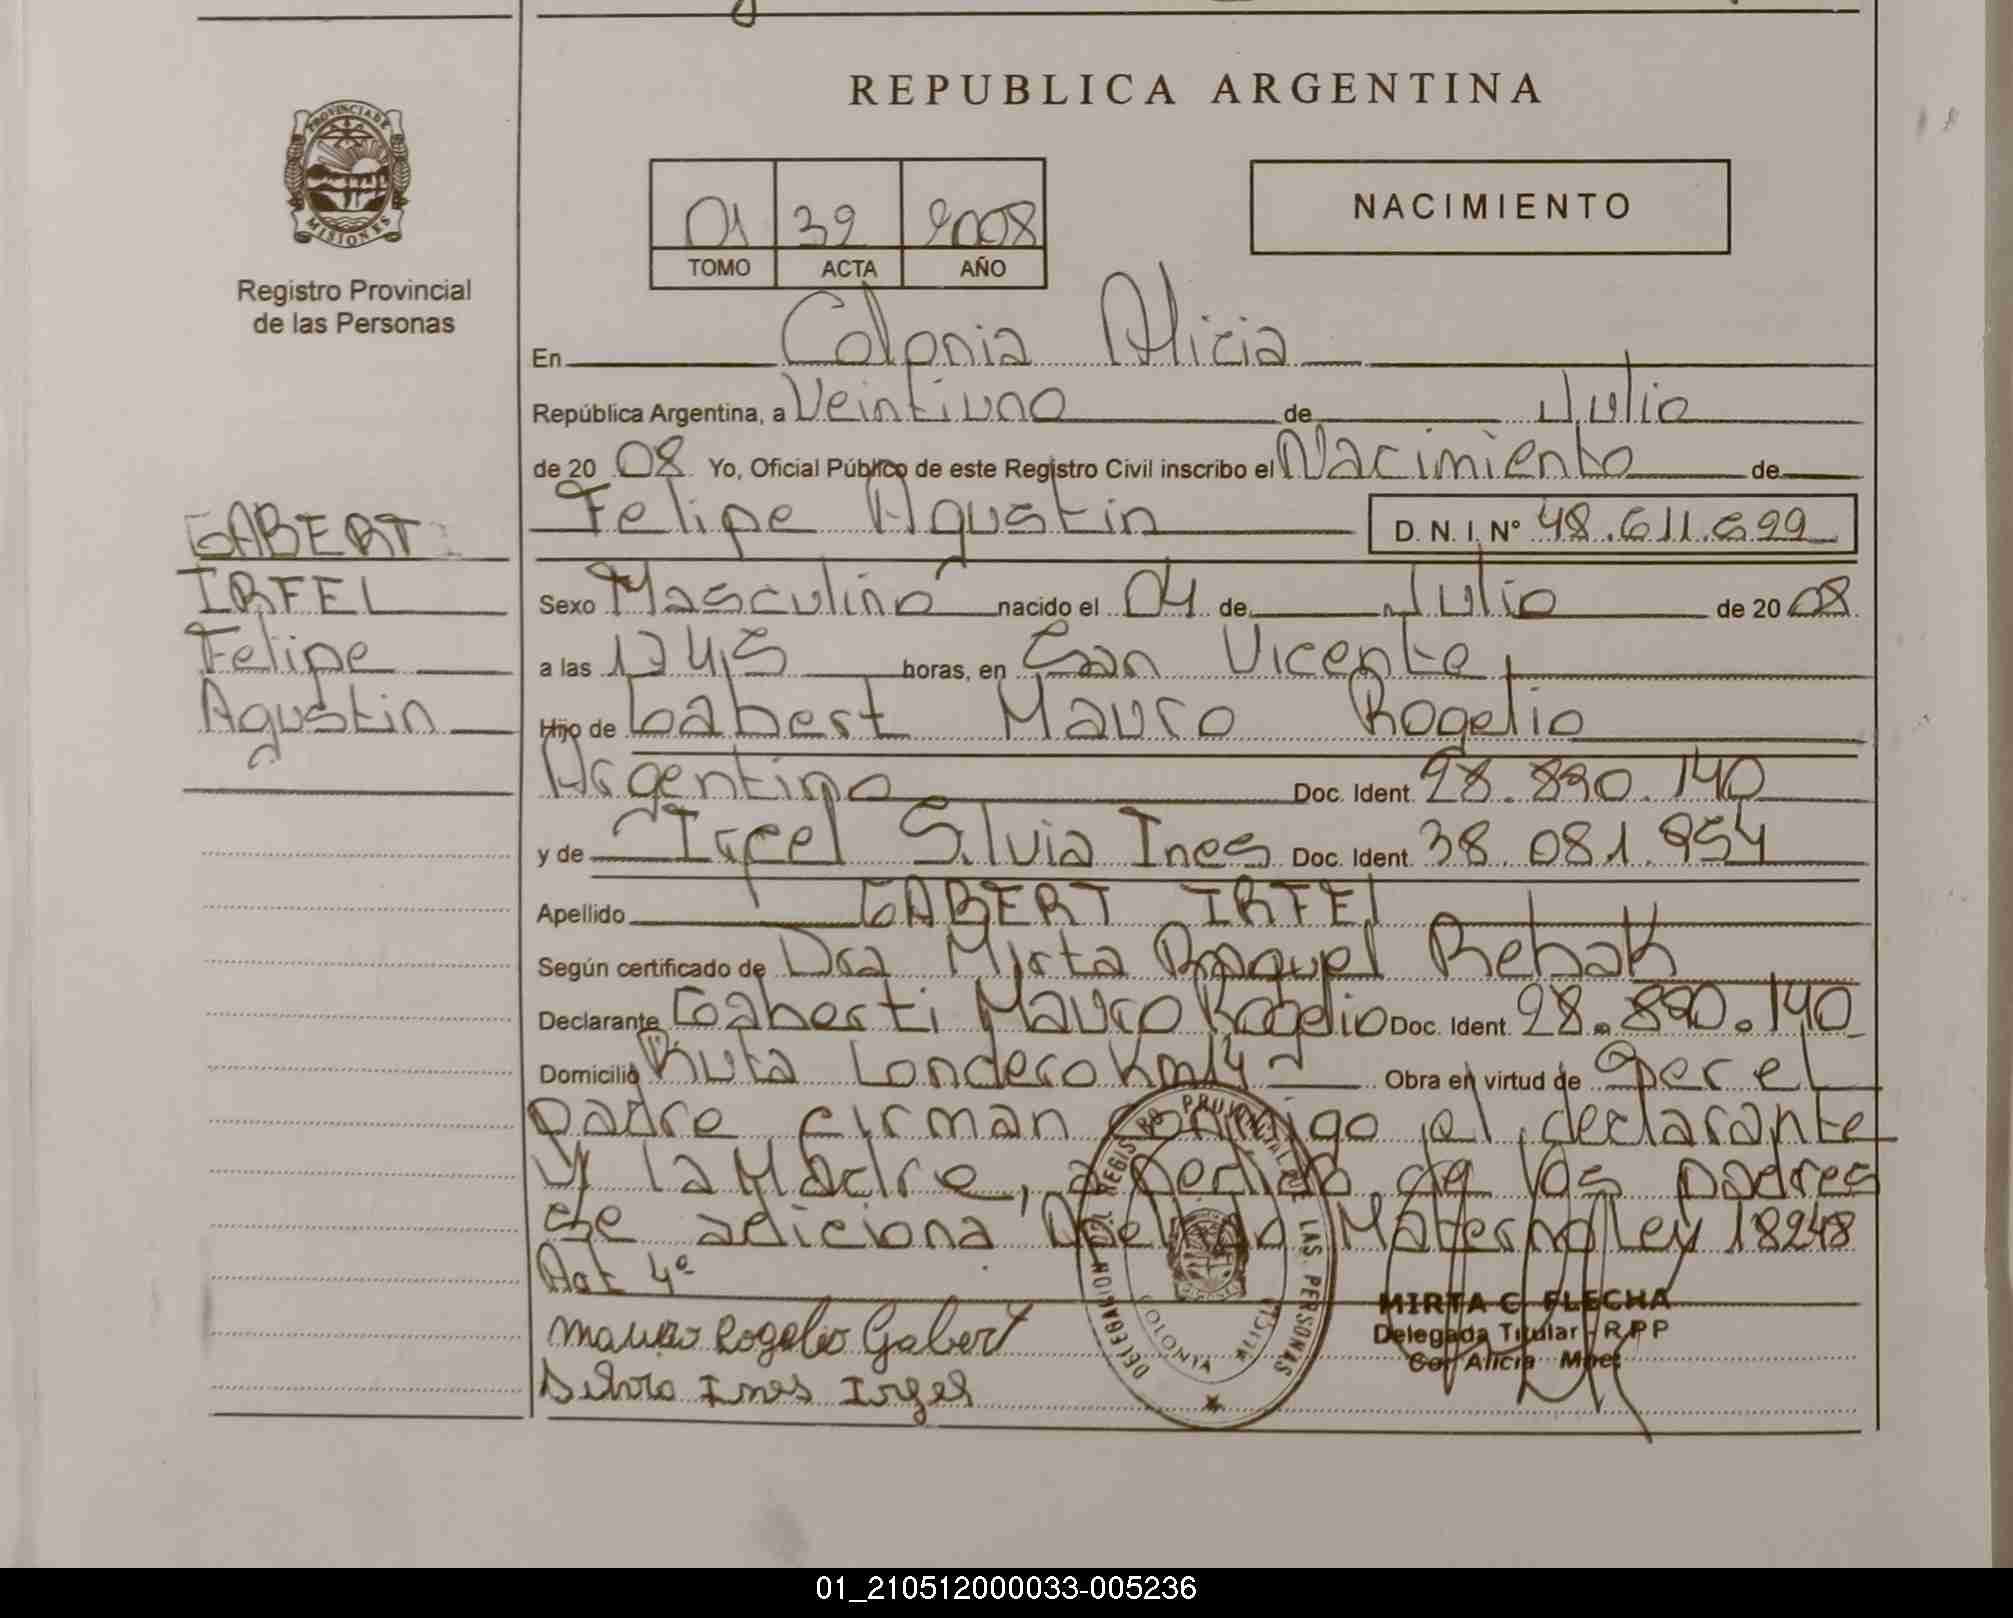 REPUBLICA ARGENTINA
PROVINCIA DE
MISIONES
Registro Provincial
de las Personas
NACIMIENTO
01 39 2008
TOMO ACTA AÑO
En Colonia Alicia
República Argentina, a Veintiuno de Julio
de 20 08 Yo, Oficial Público de este Registro Civil inscribo el Nacimiento de
Felipe Agustin D.N.I. Nº 48.611.699
GABERT
IRFEL
Felipe
Agustin
Sexo Masculino nacido el 04 de Julio de 20 08
a las 1745 horas, en San Vicente
Hijo de Gabert Mauro Rogelio
Argentino Doc. Ident. 28.890.140
y de Irfel Silvia Ines Doc. Ident. 38.081.854
Apellido GABERT IRFEL
Según certificado de Dra Mirta Raquel Rehak
Declarante Gabert Mauro Rogelio Doc. Ident. 28.890.140
Domicilio Ruta Londero Km 14 Obra en virtud de ser el
padre firman conmigo el declarante
y la Madre, a pedido de los padres
se adiciona Apellido Materno Ley 18248
Art 4º
Mauro Rogelio Gabert
Silvia Ines Irfel
DELEGACION DEL REGISTRO PROVINCIAL DE LAS PERSONAS
COLONIA ALICIA
MIRTA C. FLECHA
Delegada Titular - R.P.P
Col. Alicia Mnes
01_210512000033-005236